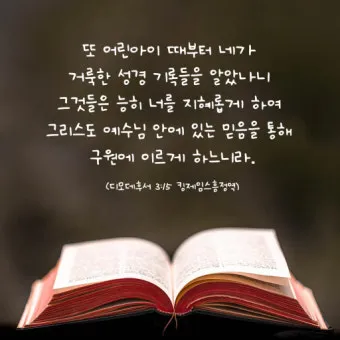 또 어린아이 때부터 네가
거룩한 성경 기록들을 알았나니
그것들은 능히 너를 지혜롭게 하여
그리스도 예수님 안에 있는 믿음을 통해
구원에 이르게 하느니라.
(디모데후서 3:15 킹제임스흠정역)